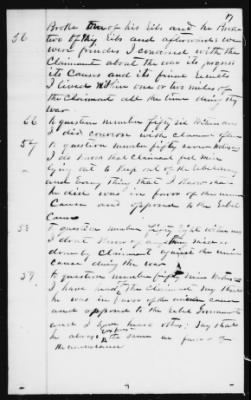 17
Broke two of his ribs and he Broke
two of his ribs and afterwards we
56
were friends I conversed with the
Claimant about the war its progress
its Causes and its final results
I lived within one or two miles of
the claimant all the time during the
war
56 to question number fifty six witness says
I did converse with claimant
57 to question number fifty seven witness
I do know that claimant
lying out to keep out of the
and every thing that I know
he did was in favor of the union
Cause and opposed to the rebel
Cause
58 to question number fifty eight witness says
I dont know of any thing said or
done by Claimant against the union
cause during the war
59 to question number fifty nine witness
I have heard the Claimant say that
he was in favor of the union cause
and opposed to the rebel Government
and I have heard others say that
he always the same in favor of
the union cause